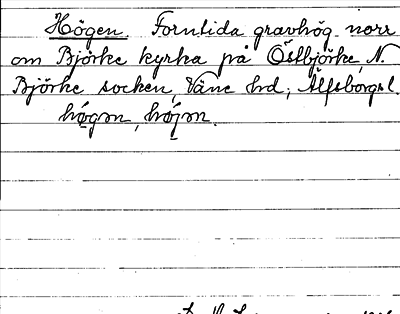 Högen. Forntida gravhög norr
om Björke kyrka på Östbjörke, N.
Björke socken, Väne hd, Älfsborgs l.
högən, höjən.